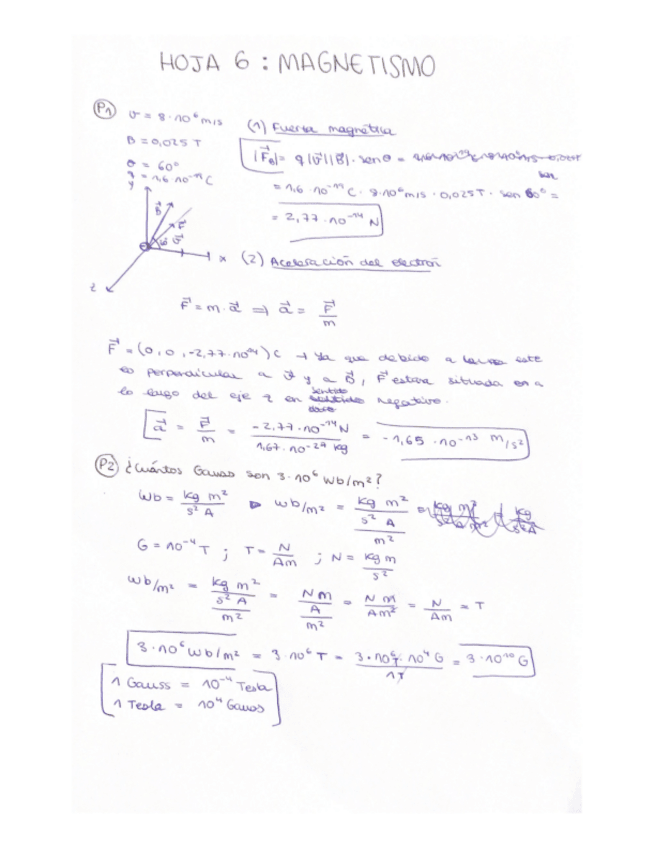 HOJA 6 : MAGNETISMO
P1 v = 8·10⁶ m/s
(1) Fuerza magnética
B = 0,025 T
|F⃗B| = q |v⃗| |B⃗| · senθ =
θ = 60º
q = 1,6·10⁻¹⁹ C
= 1,6·10⁻¹⁹ C · 8·10⁶ m/s · 0,025 T · sen 60º =
= 2,77·10⁻¹⁴ N
y
B⃗
60
v⃗
x
z
(2) Aceleración del electrón
F⃗ = m·a⃗ ⟹ a⃗ = F⃗/m
F⃗ = (0, 0, -2,77·10⁻¹⁴) C → Ya que debido a este
es perpendicular a v⃗ y a B⃗, F⃗ estará situada en a
lo largo del eje z en sentido negativo.
a⃗ = F⃗/m = -2,77·10⁻¹⁴ N / 1,67·10⁻²⁷ kg = -1,65·10⁻¹³ m/s²
P2 ¿Cuántos Gauss son 3·10⁶ Wb/m²?
Wb = kg m² / s² A ▷ Wb/m² = kg m² / s² A / m² =
G = 10⁻⁴ T ; T = N / Am ; N = kg m / s²
Wb/m² = kg m² / s² A / m² = N m / A / m² = N m / A m² = N / Am = T
3·10⁶ Wb/m² = 3·10⁶ T = 3·10⁶ T · 10⁴ G / 1T = 3·10¹⁰ G
1 Gauss = 10⁻⁴ Tesla
1 Tesla = 10⁴ Gauss